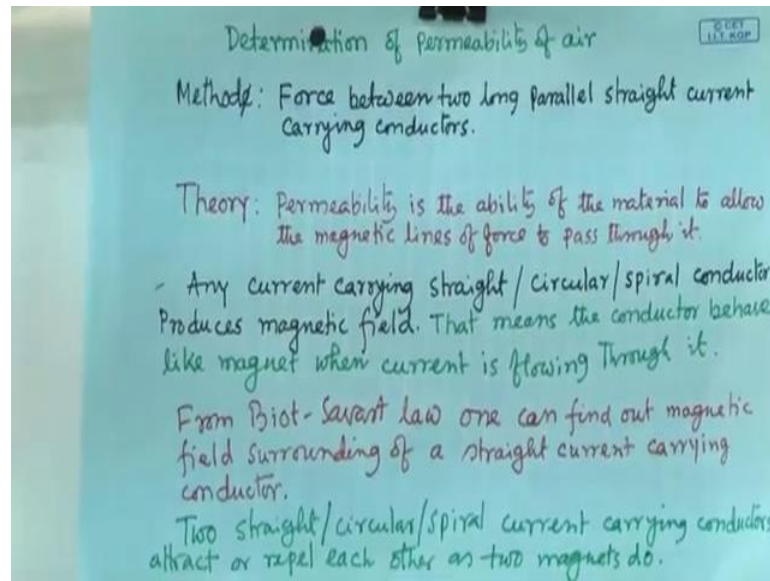 Determination of permeability of air
© CET
I.I.T. KGP
Method: Force between two long parallel straight current
carrying conductors.
Theory: Permeability is the ability of the material to allow
the magnetic lines of force to pass through it.
- Any current carrying straight/circular/spiral conductor
Produces magnetic field. That means the conductor behave
like magnet when current is flowing Through it.
From Biot-Savart law one can find out magnetic
field surrounding of a straight current carrying
conductor.
Two straight/circular/spiral current carrying conductors
attract or repel each other as two magnets do.